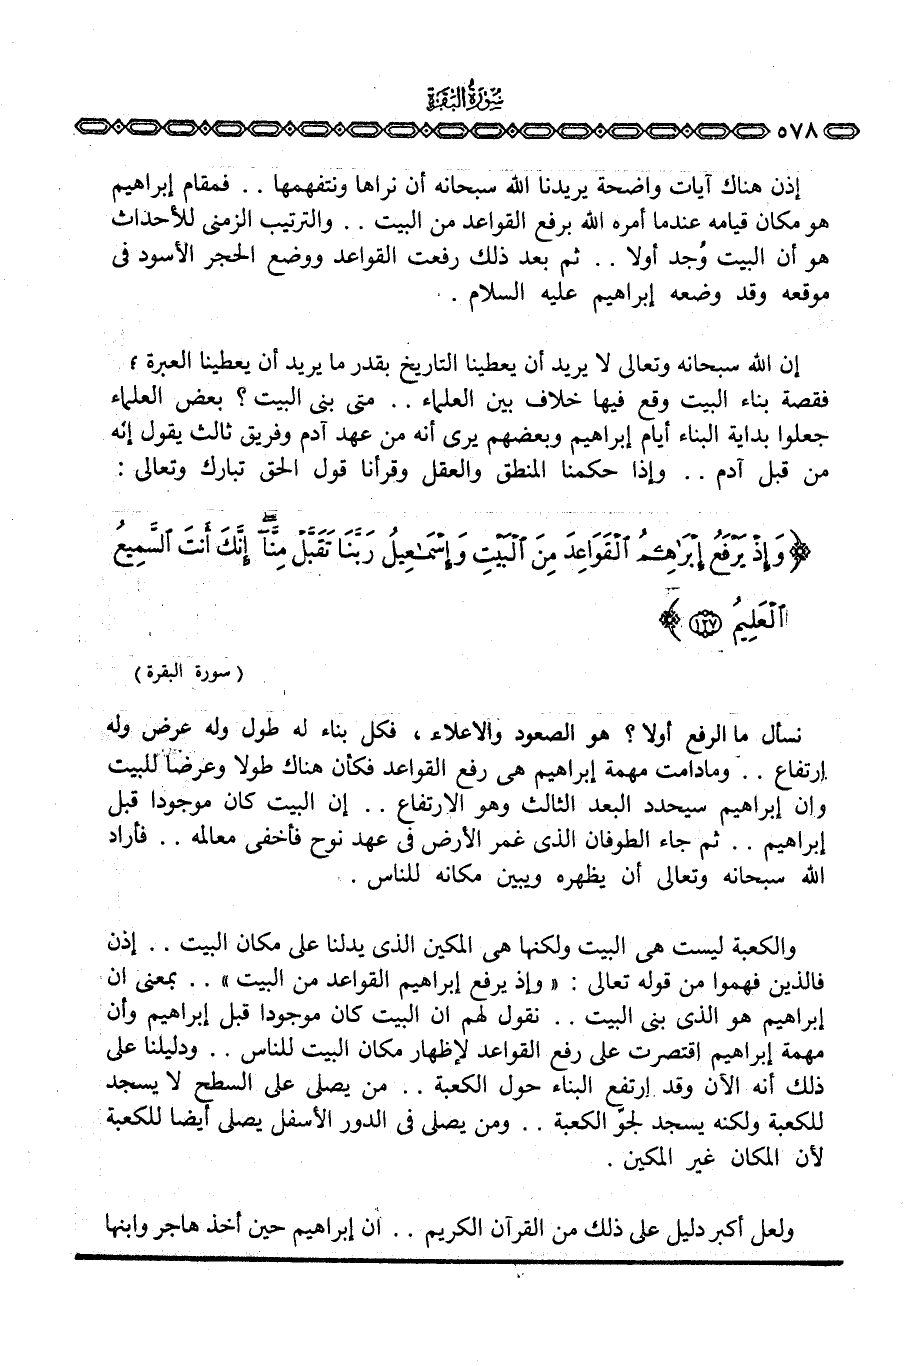 سورة البقرة
٥٧٨
إذن هناك آيات واضحة يريدنا الله سبحانه أن نراها ونتفهمها . . فمقام إبراهيم
هو مكان قيامه عندما أمره الله برفع القواعد من البيت . . والترتيب الزمنى للأحداث
هو أن البيت وُجد أولا . . ثم بعد ذلك رفعت القواعد ووضع الحجر الأسود فى
موقعه وقد وضعه إبراهيم عليه السلام .
إن الله سبحانه وتعالى لا يريد أن يعطينا التاريخ بقدر ما يريد أن يعطينا العبرة ؛
فقصة بناء البيت وقع فيها خلاف بين العلماء . . متى بنى البيت ؟ بعض العلماء
جعلوا بداية البناء أيام إبراهيم وبعضهم يرى أنه من عهد آدم وفريق ثالث يقول إنه
من قبل آدم . . وإذا حكمنا المنطق والعقل وقرأنا قول الحق تبارك وتعالى :
﴿ وَإِذْ يَرْفَعُ إِبْرَٰهِـۧمُ ٱلْقَوَاعِدَ مِنَ ٱلْبَيْتِ وَإِسْمَـٰعِيلُ رَبَّنَا تَقَبَّلْ مِنَّآ ۖ إِنَّكَ أَنتَ ٱلسَّمِيعُ
ٱلْعَلِيمُ ١٢٧ ﴾
( سورة البقرة )
نسأل ما الرفع أولا ؟ هو الصعود والاعلاء ، فكل بناء له طول وله عرض وله
إرتفاع . . ومادامت مهمة إبراهيم هى رفع القواعد فكأن هناك طولا وعرضا للبيت
وان إبراهيم سيحدد البعد الثالث وهو الارتفاع . . إن البيت كان موجودا قبل
إبراهيم . . ثم جاء الطوفان الذى غمر الأرض فى عهد نوح فأخفى معالمه . . فأراد
الله سبحانه وتعالى أن يظهره ويبين مكانه للناس .
والكعبة ليست هى البيت ولكنها هى المكين الذى يدلنا على مكان البيت . . إذن
فالذين فهموا من قوله تعالى : « وإذ يرفع إبراهيم القواعد من البيت » . . بمعنى ان
إبراهيم هو الذى بنى البيت . . نقول لهم ان البيت كان موجودا قبل إبراهيم وأن
مهمة إبراهيم اقتصرت على رفع القواعد لإظهار مكان البيت للناس . . ودليلنا على
ذلك أنه الآن وقد إرتفع البناء حول الكعبة . . من يصلى على السطح لا يسجد
للكعبة ولكنه يسجد لجوّ الكعبة . . ومن يصلى فى الدور الأسفل يصلى أيضا للكعبة
لأن المكان غير المكين .
ولعل أكبر دليل على ذلك من القرآن الكريم . . ان إبراهيم حين أخذ هاجر وابنها